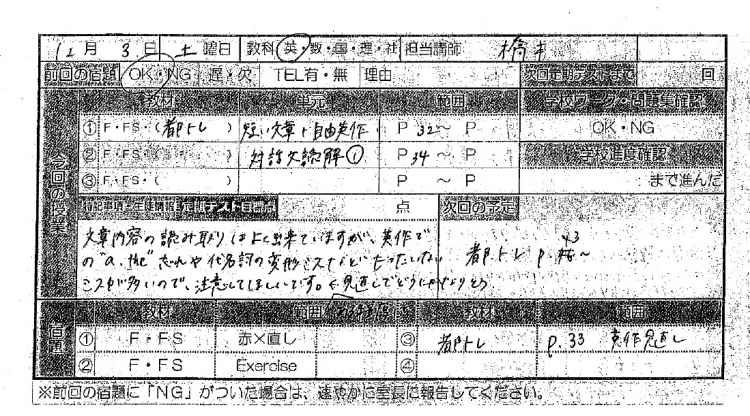 12月 3日 土曜日 教科 英・数・国・理・社 担当講師
前回の宿題 OK・NG 遅・欠 TEL有・無 理由 次回定期テストまで 回
教材 単元 範囲 学校ワーク・問題集確認
今回の授業
① F・FS・(都トレ) 短い文章+自由英作 P 32～ P OK・NG
② F・FS・( ) 対話文読解① P 34～ P 学校進度確認
③ F・FS・( ) P ～ P まで進んだ
点 次回の予定
文章内容の読み取りはよく出来ていますが、英作で
の"a, the"忘れや代名詞の変形ミスなどもったいない
ミスが多いので、注意してほしいです。
都トレ p. 43～
宿題 教材 範囲 教材 範囲
① F・FS 赤×直し ③ 都トレ p.33 英作見直し
② F・FS Exercise ④
※前回の宿題に「NG」がついた場合は、速やかに室長に報告してください。